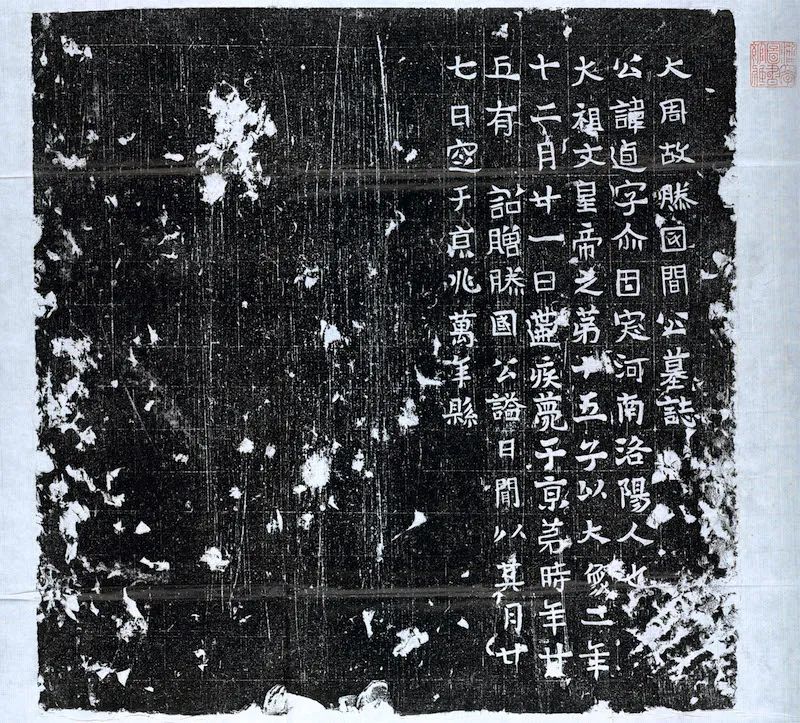 大周故滕國間公墓誌
公諱逌字尒固突河南洛陽人也
大祖文皇帝之第十五子以大象二年
十二月廿一日遘疾薨于京第時年廿
五有詔贈滕國公謚曰間以其月廿
七日窆于京兆萬年縣